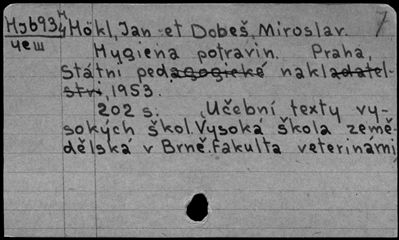 Hyб93 4/4 Hökl, Jan et Dobeš, Miroslav. 1
чеш Hygiena potravin. Praha,
Státní pedagogické nakladatel-
ství, 1953.
202 s. Učební texty vy-
sokých škol. Vysoká škola země-
dělská v Brně. Fakulta veterinární